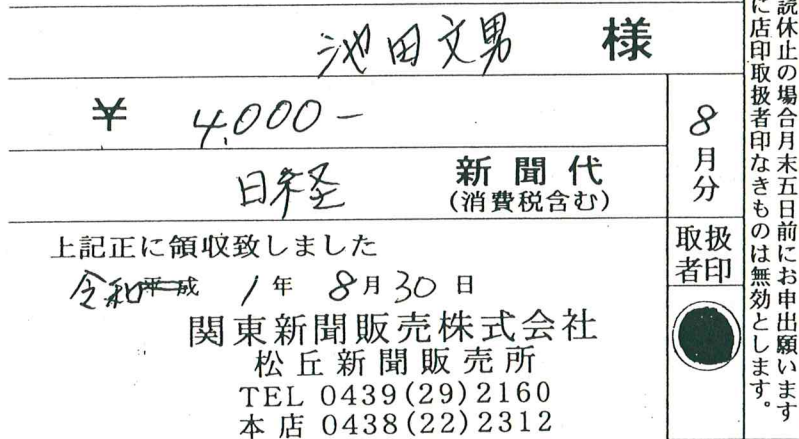 池田文男 様
¥ 4,000-
8月分
日経 新聞代
(消費税含む)
上記正に領収致しました
取扱者印
令和 平成 1年 8月30日
関東新聞販売株式会社
松丘新聞販売所
TEL 0439(29)2160
本店 0438(22)2312
読休止の場合月末五日前にお申出願います
に店印取扱者印なきものは無効とします。